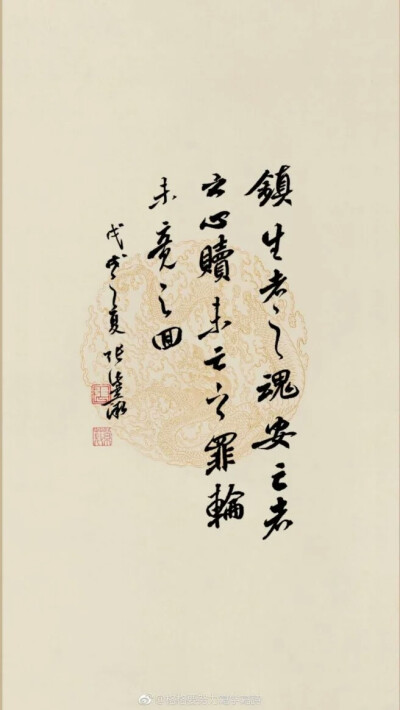 鎮生者之魂安亡者
之心贖未亡之罪輪
未竟之回
戊戌之夏